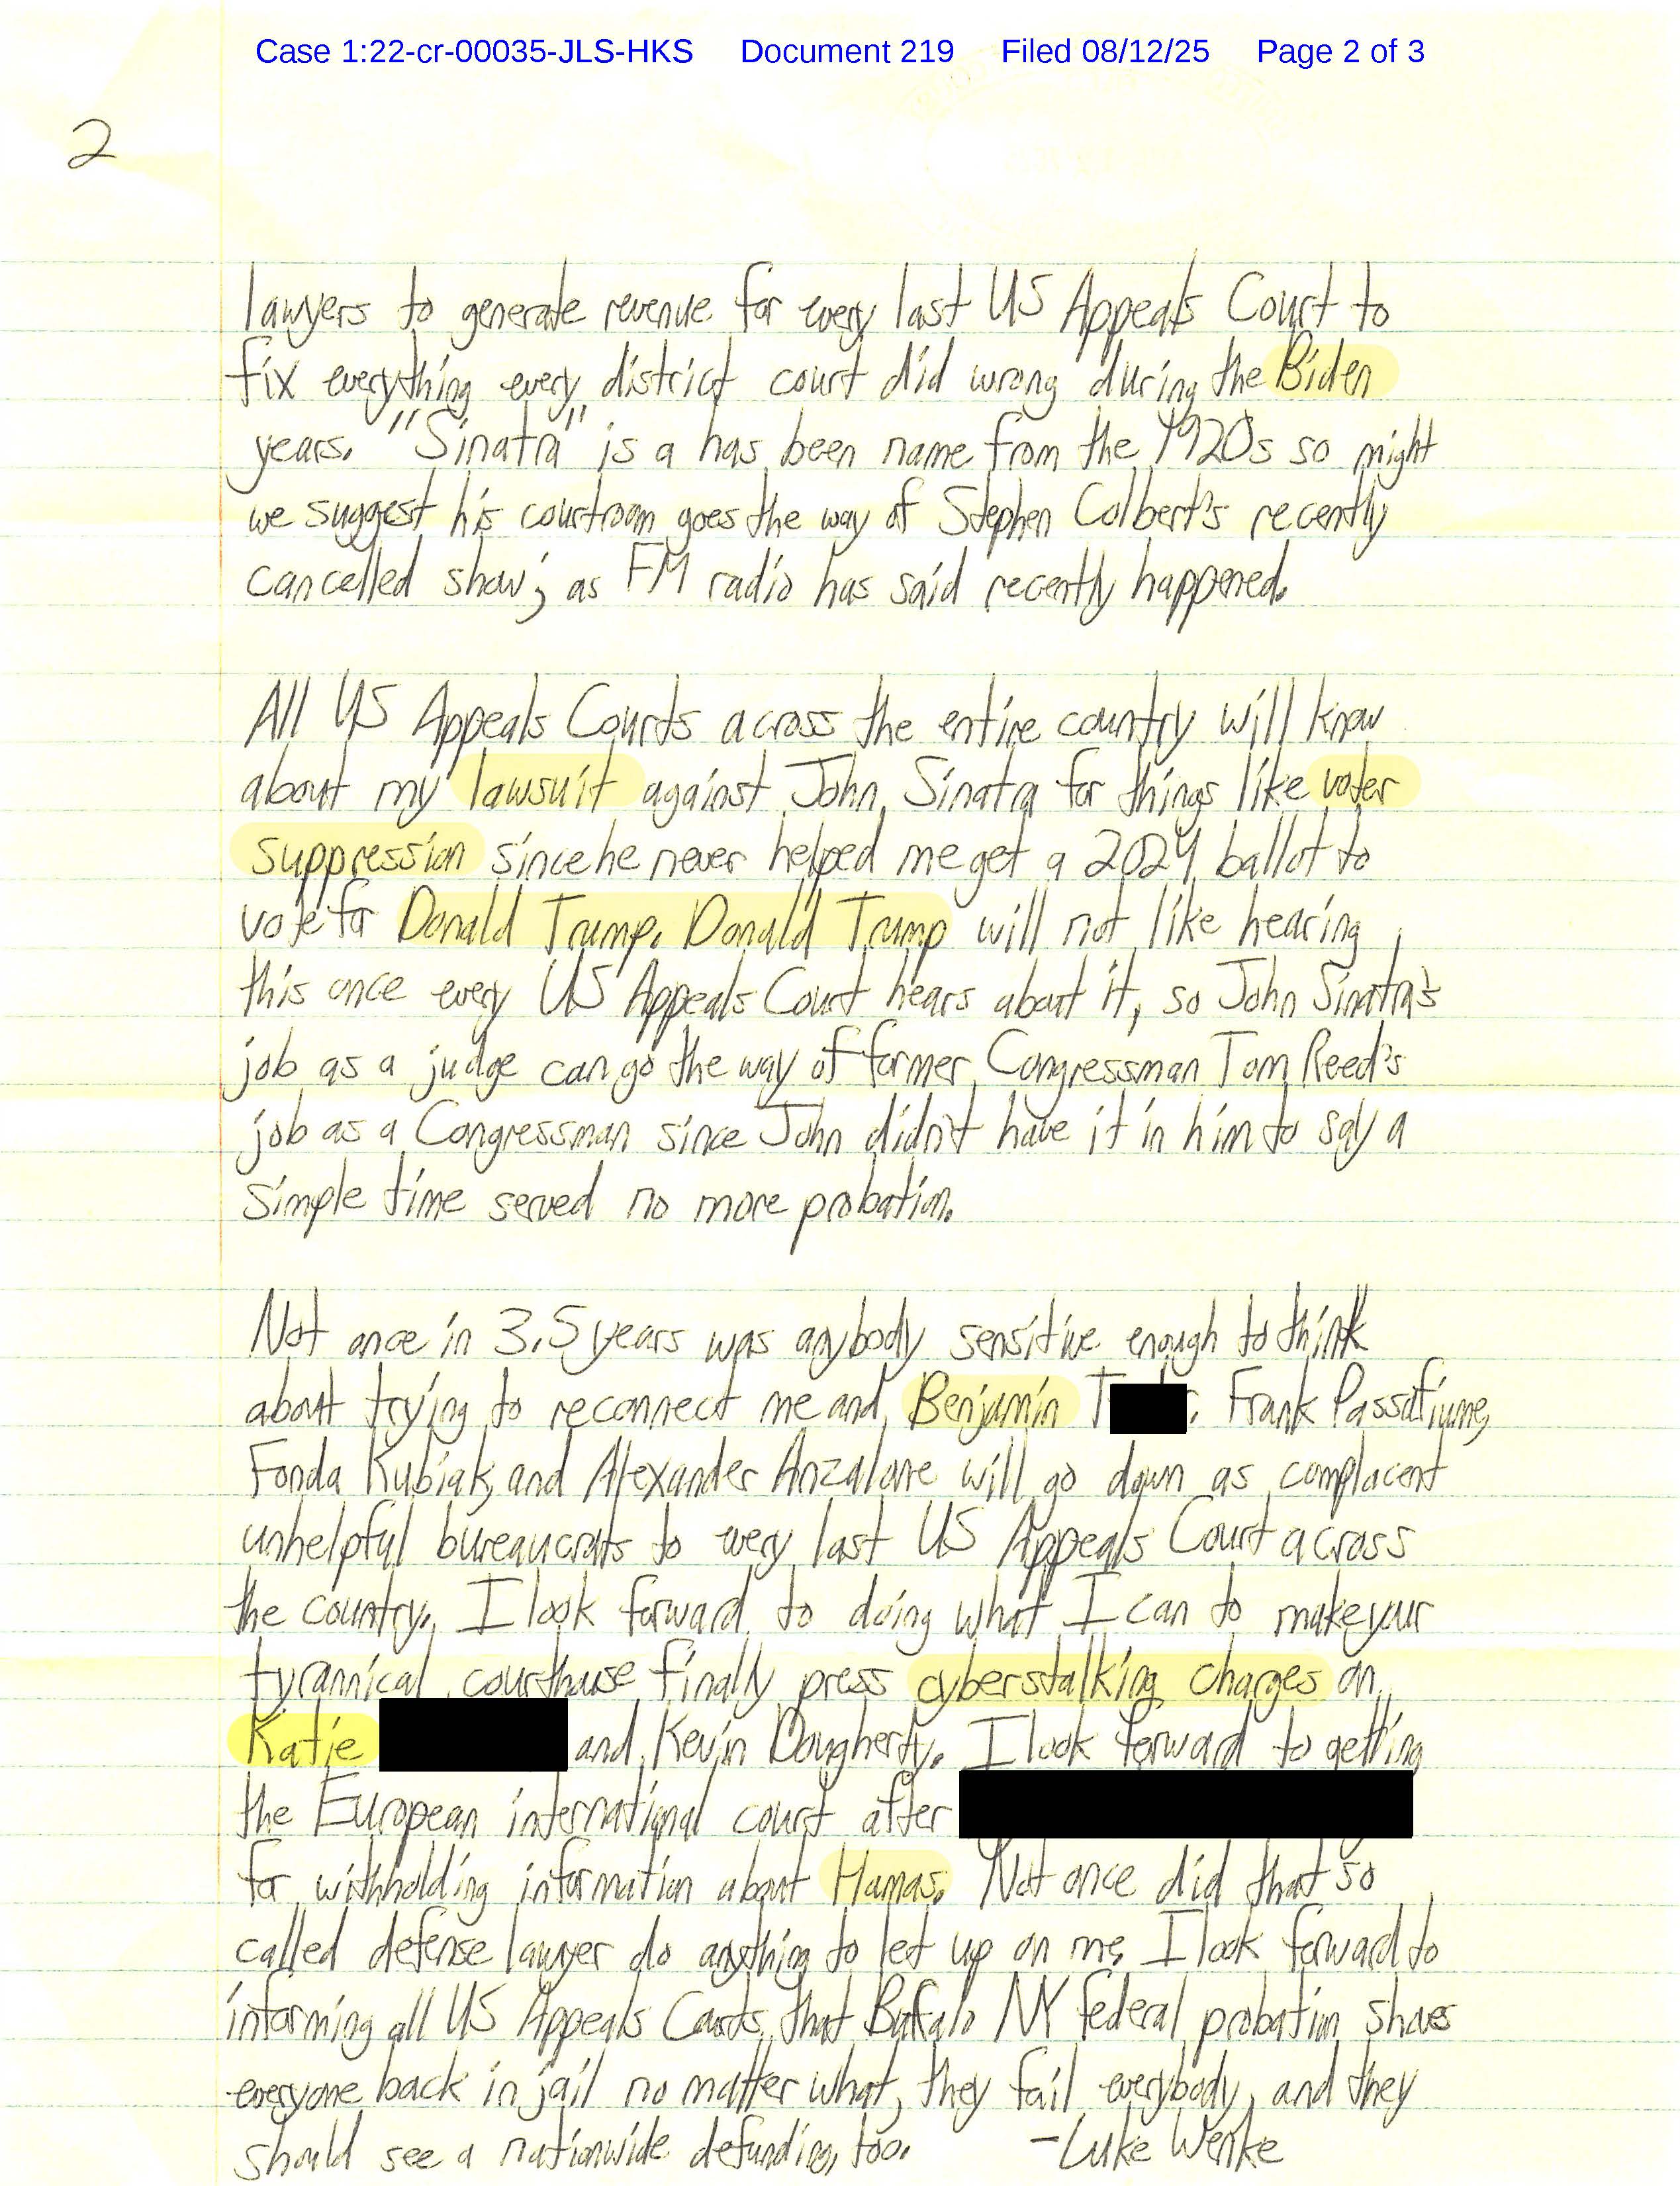 Case 1:22-cr-00035-JLS-HKS Document 219 Filed 08/12/25 Page 2 of 3
2
lawyers to generate revenue for every last US Appeals Court to
fix everything every district court did wrong during the Biden
years. "Sinatra" is a has been name from the 1920s so might
we suggest his courtroom goes the way of Stephen Colbert's recently
cancelled show; as FM radio has said recently happened.
All US Appeals Courts across the entire country will know
about my lawsuit against John Sinatra for things like voter
suppression since he never helped me get a 2024 ballot to
vote for Donald Trump. Donald Trump will not like hearing
this once every US Appeals Court hears about it, so John Sinatra's
job as a judge can go the way of former Congressman Tom Reed's
job as a Congressman since John didn't have it in him to say a
simple time served no more probation.
Not once in 3.5 years was anybody sensitive enough to think
about trying to reconnect me and Benjamin T r. Frank Passafiume,
Fonda Kubiak, and Alexander Anzalone will go down as complacent
unhelpful bureaucrats to every last US Appeals Court across
the country. I look forward to doing what I can to make your
tyrannical courthouse finally press cyberstalking charges on
Katie and Kevin Dougherty. I look forward to getting
the European international court after
for withholding information about Hamas. Not once did that so
called defense lawyer do anything to let up on me. I look forward to
informing all US Appeals Courts that Buffalo NY federal probation shoves
everyone back in jail no matter what, they fail everybody, and they
should see a nationwide defunding, too. -Luke Wenke